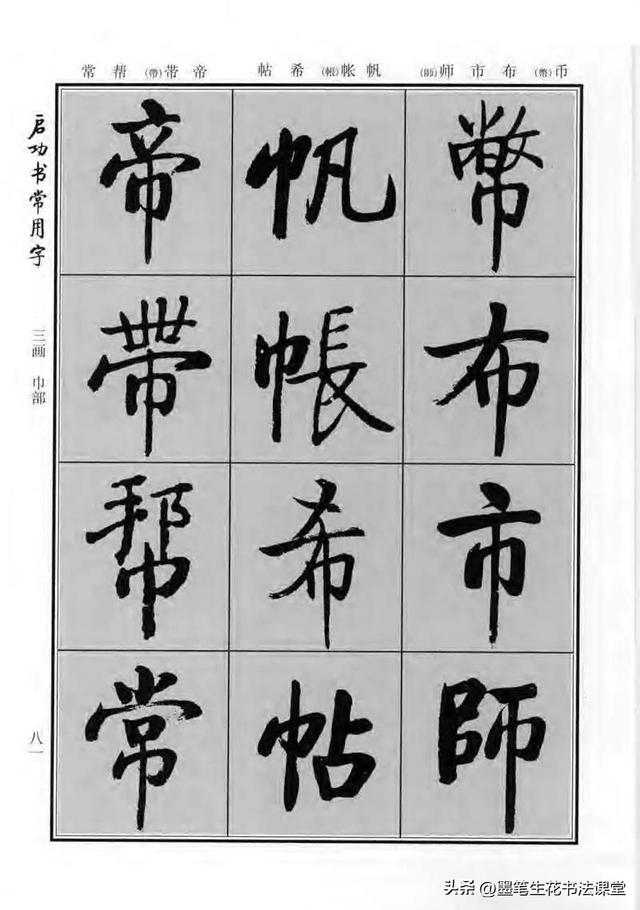 币(幣) 布 市 师(師) 帆 帐(帳) 希 帖 帝 带(帶) 帮 常
幣布市師
帆帳希帖
帝帶帮常
启功书常用字
三画 巾部
八一
头条 @墨笔生花书法课堂